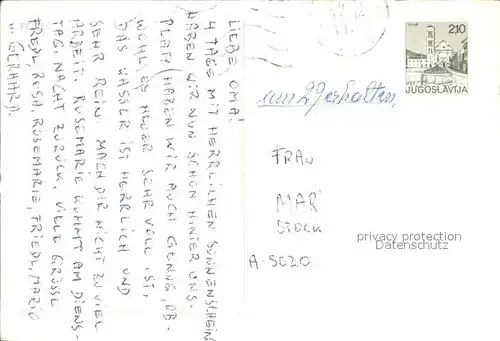 LIEBE OMA!
4 TAGE MIT HERRLICHEN SONNENSCHEIN
HABEN WIR NUN SCHON HINTER UNS.
PLATZ HABEN WIR AUCH GENUG, OB-
WOHL ES HEUER SEHR VOLL IST,
DAS WASSER IST HERRLICH UND
SEHR REIN. MACH DIR NICHT ZU VIEL
ARBEIT. ROSEMARIE KOMMT AM DIENS-
TAG NACHT ZURÜCK. VIELE GRÜSSE
FRIEDL, ROSA, ROSEMARIE, FRIEDL, MARIO
U. GERHARD.
2,10
JUGOSLAVIJA
am 29 erhalten.
FRAU
MAR
STOCK
A-5020
privacy protection
Datenschutz